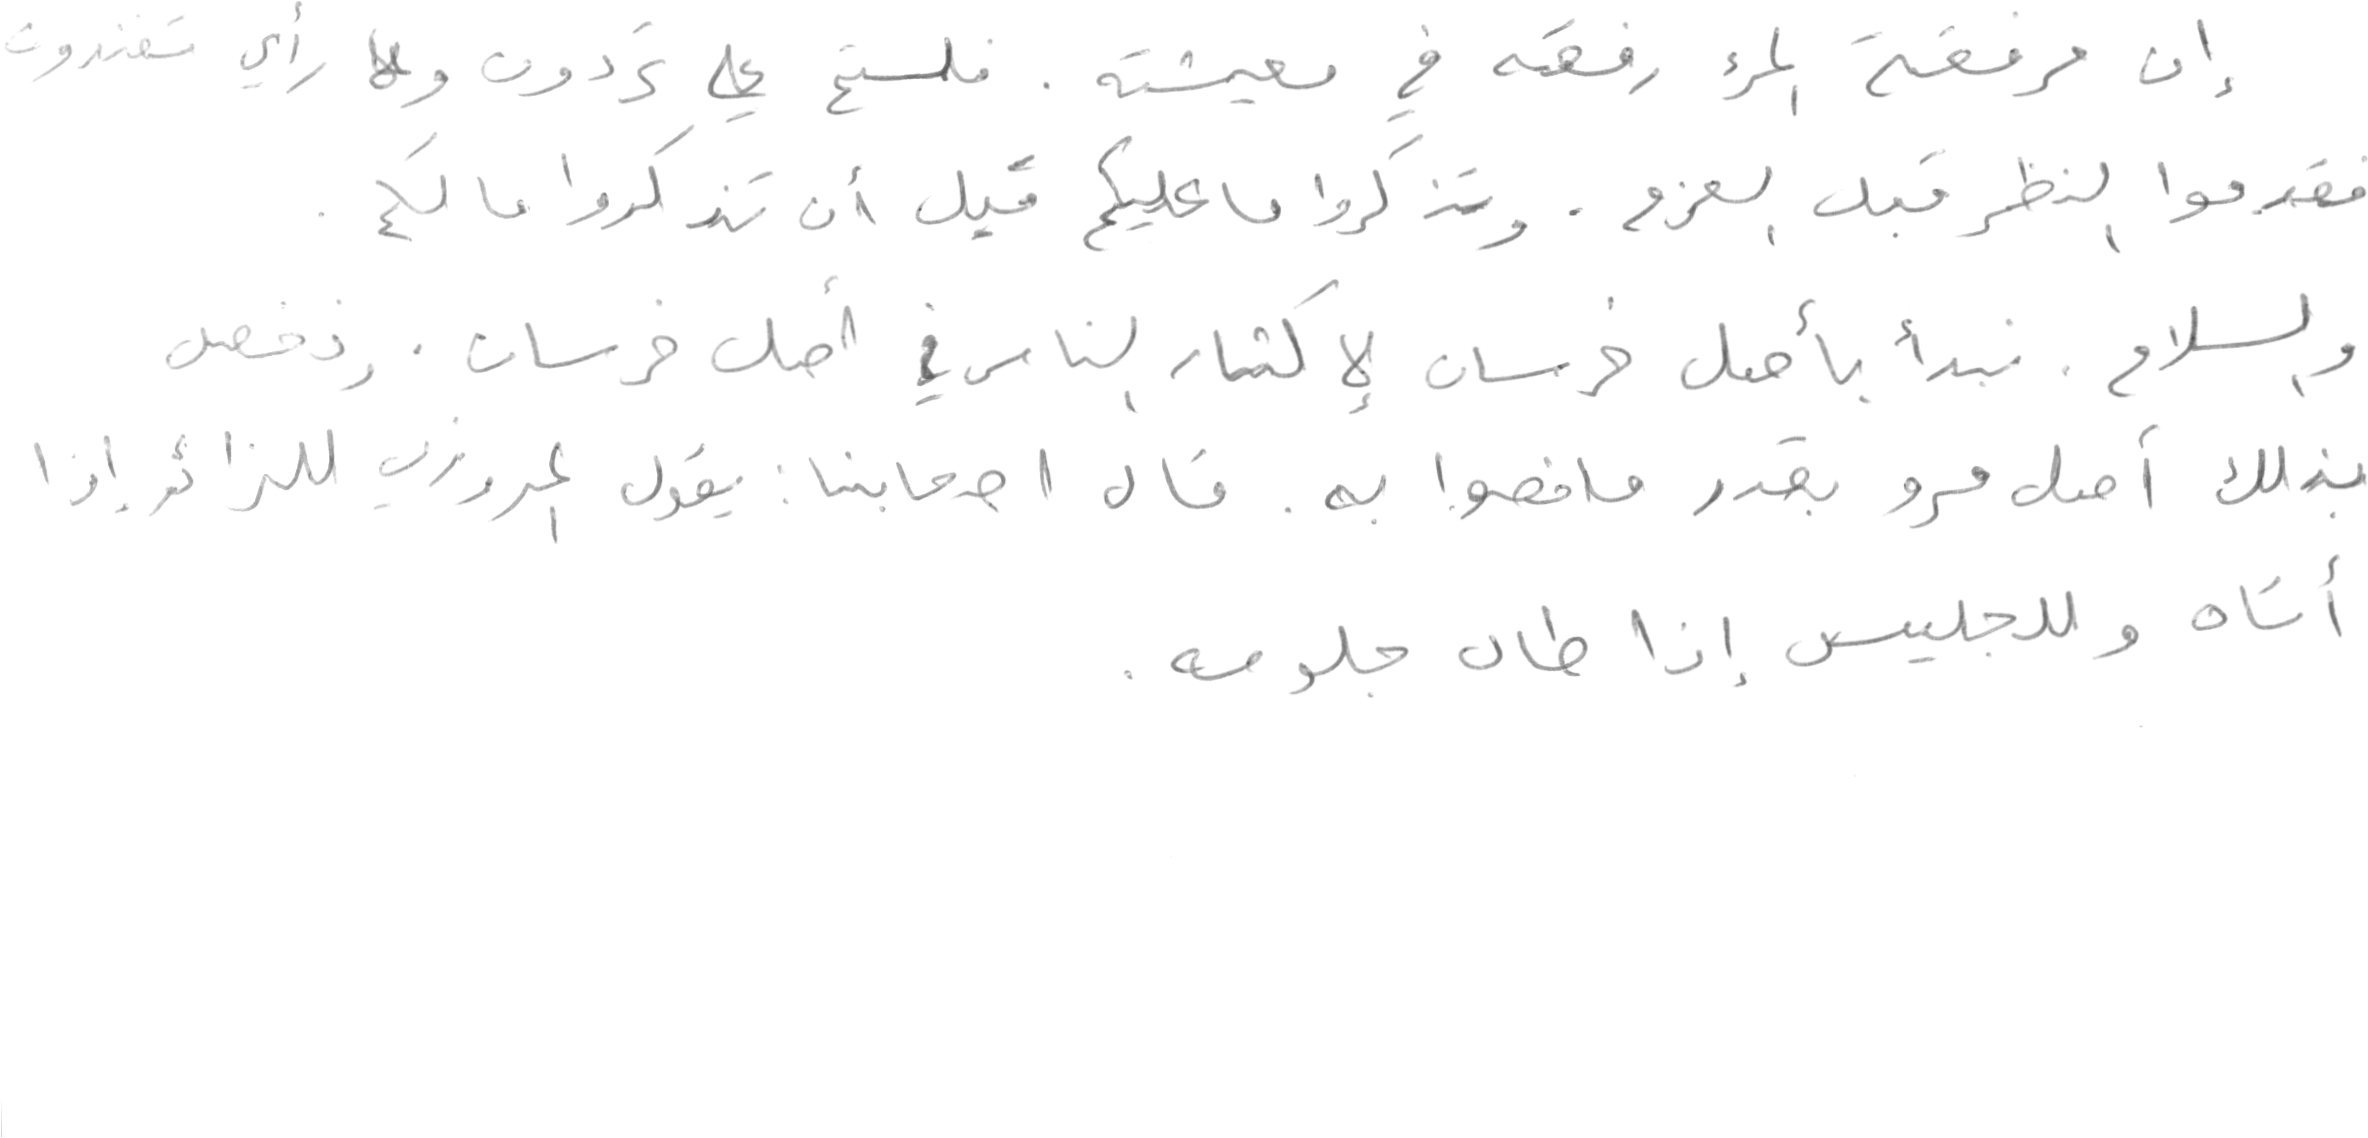 إن مرفقة المرء رفقه في معيشته . فلستم علي تردون ولا رأيي تفندون
فقدموا النظر قبل العزم . وتذكروا ما عليكم قبل أن تذكروا ما لكم .
والسلام . نبدأ بأهل خرسان لإكثار الناس في أهل خرسان . ونخص
بذلك أهل مرو بقدر ما خصوا به . قال اصحابنا : يقول المروزي للزائر إذا
أتاه وللجليس إذا طال جلوسه .